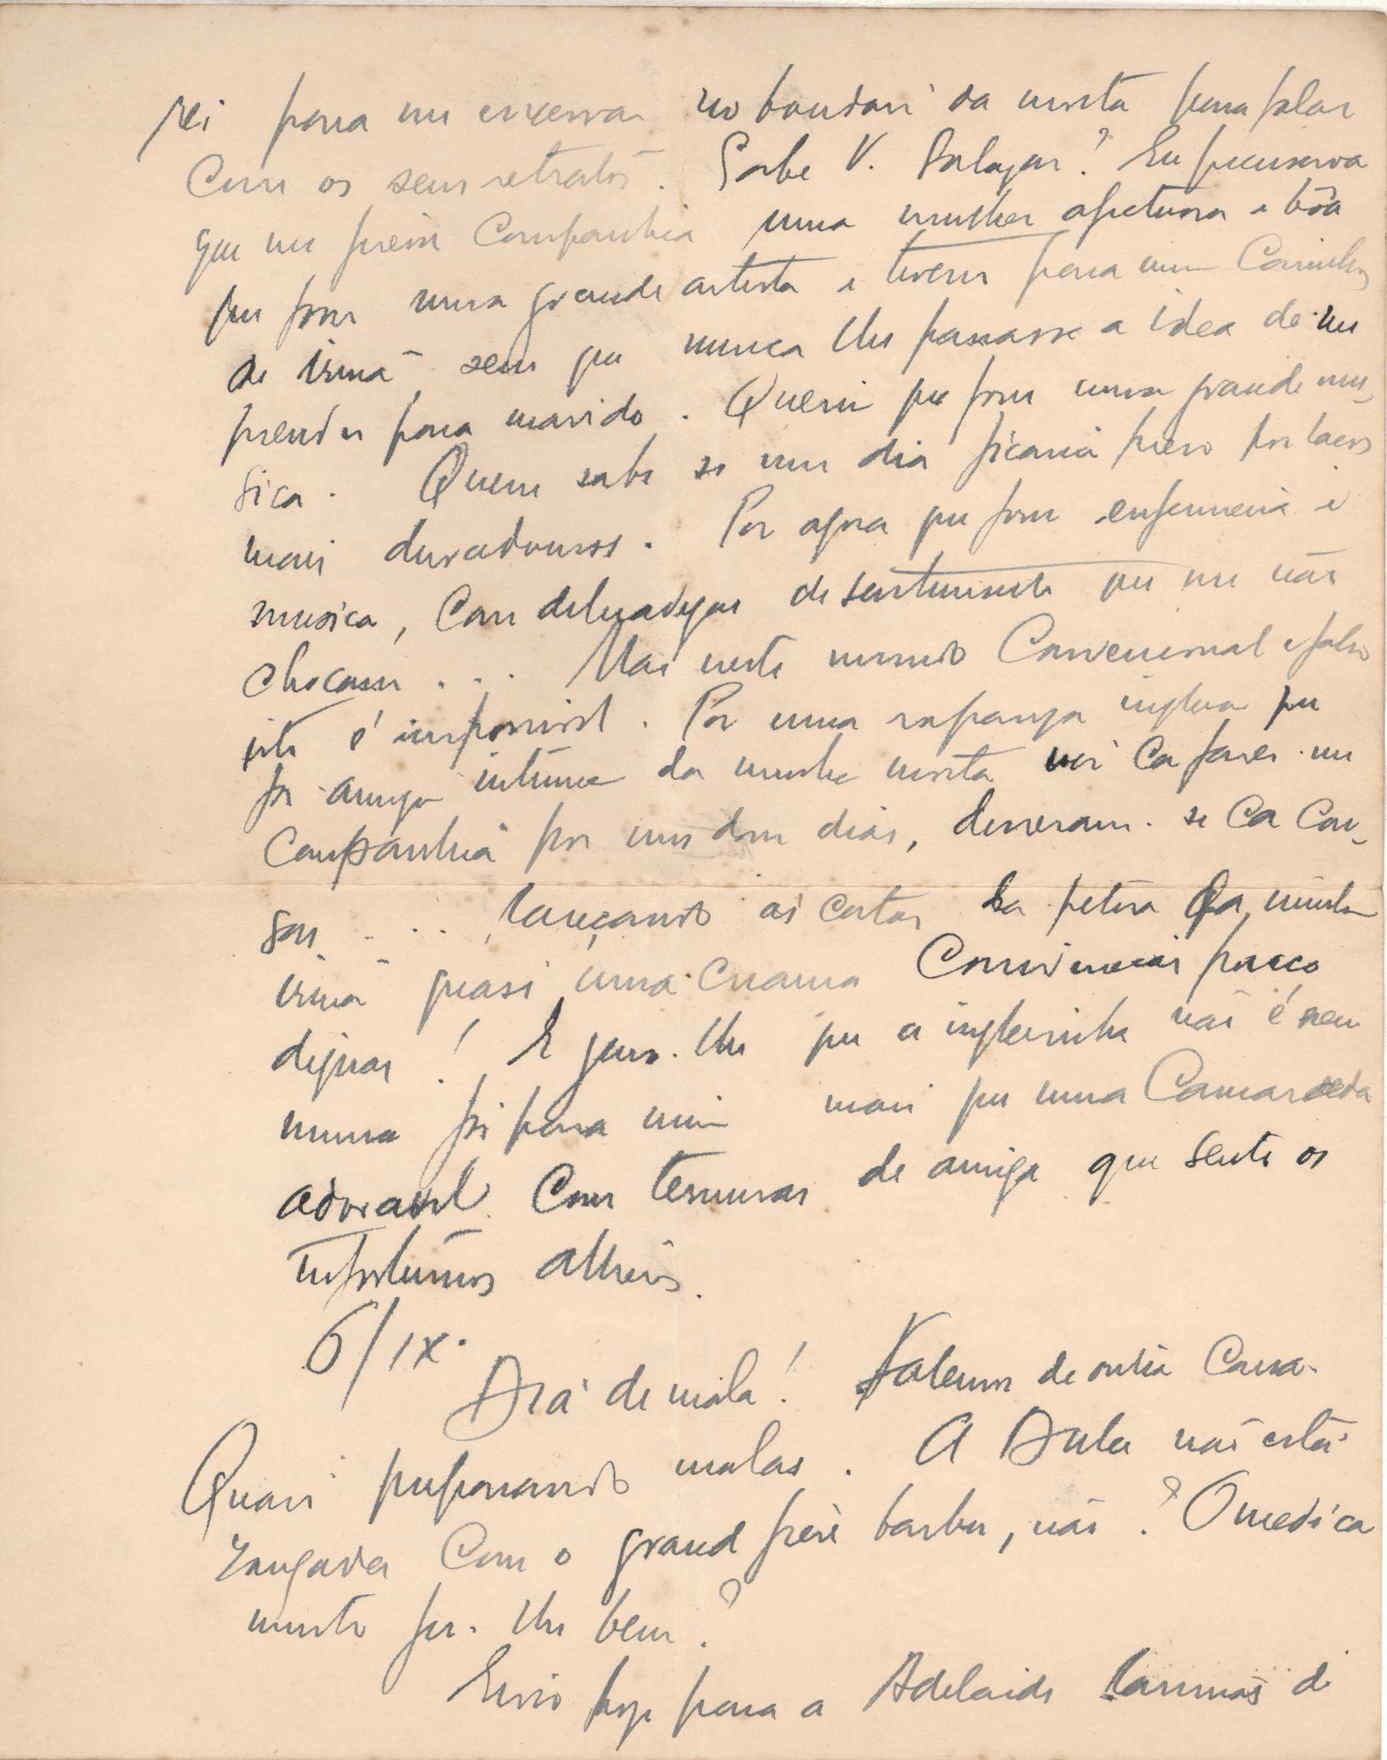 rei para me encerrar no boudoir da morta para falar
com os seus retratos. Sabe V. Salazar? Eu precisava
que me fizesse companhia uma mulher afectuosa e bôa
que fosse uma grande artista e tivesse para mim carinhos
de irmã sem que nunca lhe passasse a idea de me
prender para marido. Queria que fosse uma grande mu-
sica. Quem sabe se um dia ficaria preso por laços
mais duradouros. Por agora que fosse enfermeira e
musica, com delicadezas de sentimento que me não
chocassem... Mas neste mundo convencional e falso
isto é impossivel. Por uma rapariga inglesa que
foi amiga intima da minha morta vir cá fazer-me
companhia por uns dois dias, disseram-se cá cou-
sas... lançando ás costas da minha
irmã quasi uma criança conivencias pouco
dignas! E juro-lhe que a inglesinha não é nem
nunca foi para mim mais que uma camarada
adoravel com ternuras de amiga que sente os
infortunios alheios.
6/IX.
Dia de mala! Falemos de outra cousa.
Quasi preparando malas. A não está
zangada com o grand frère barbu, não? O medico
muito fez-lhe bem?
Envio hoje para a Adelaide laminas de